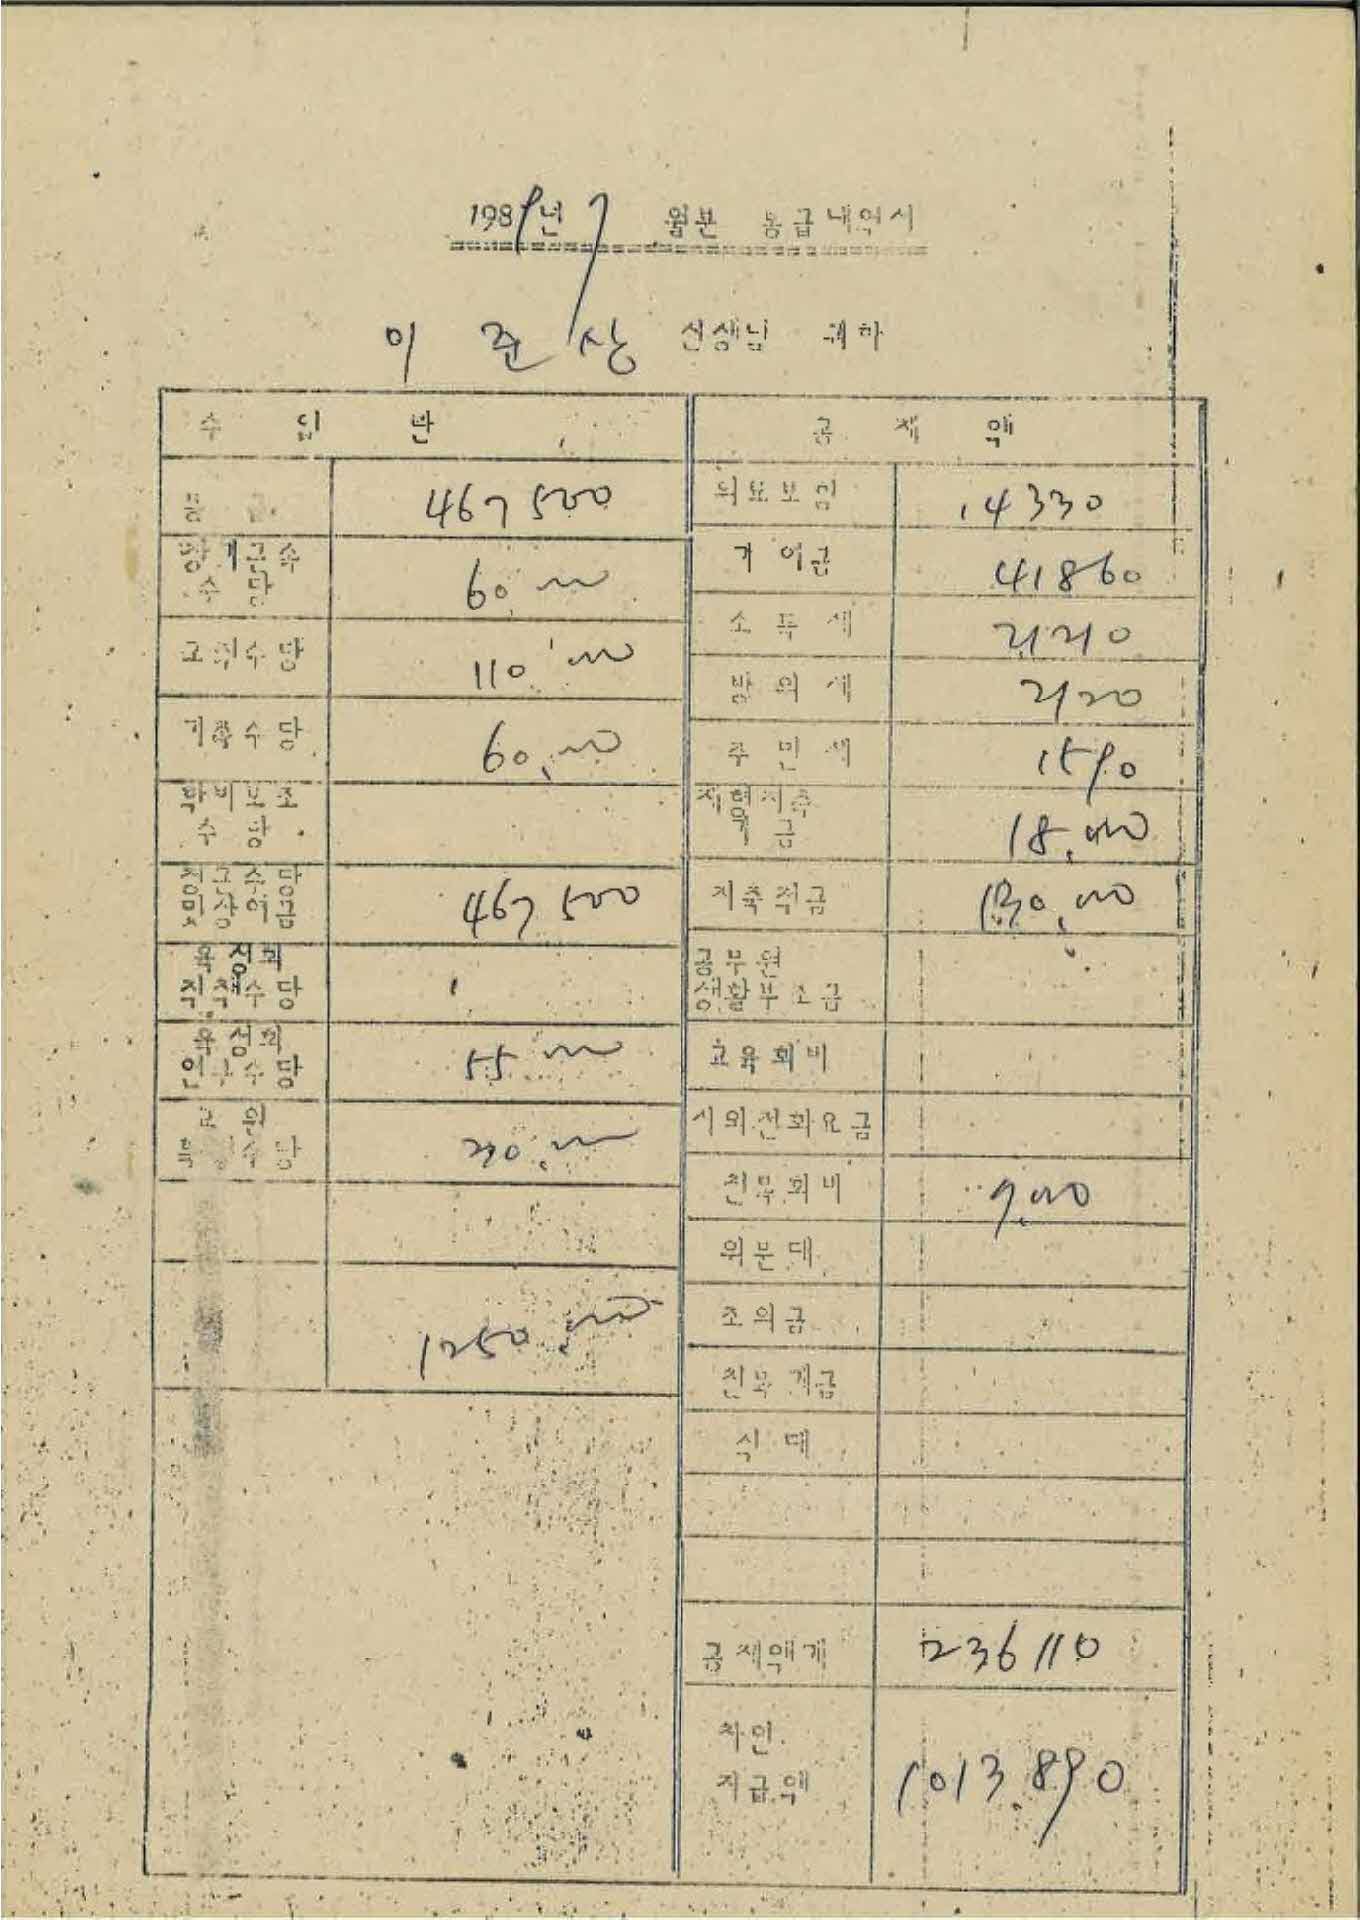 1989년 7 월분 봉급내역서
이준상 선생님 귀하
수 입 란
공 제 액
봉 급 467500
의료보험 14330
장기근속
수 당 60,000
기여금 41860
교직수당 110,000
소 득 세 21210
방 위 세 2120
가족수당 60,000
주 민 세 1590
학비보조
수 당
저축
금 18,000
정근수당
및상여금 467500
저축적금 130,000
육성회
직책수당
공무원
생활부조금
육성회
연구수당 55,000
교육회비
교 원
수당 30,000
시외전화요금
친목회비 7,000
위문대
1250,000
조의금
친목계금
식 대
공제액계 236110
차인
지급액 1013,890